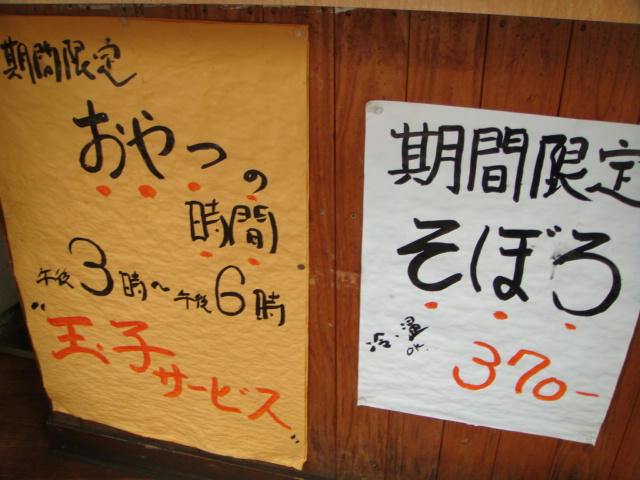 期間限定
おやつの
時間
午後3時〜午後6時
"玉子サービス"
期間限定
そぼろ
冷・温OK.
370-